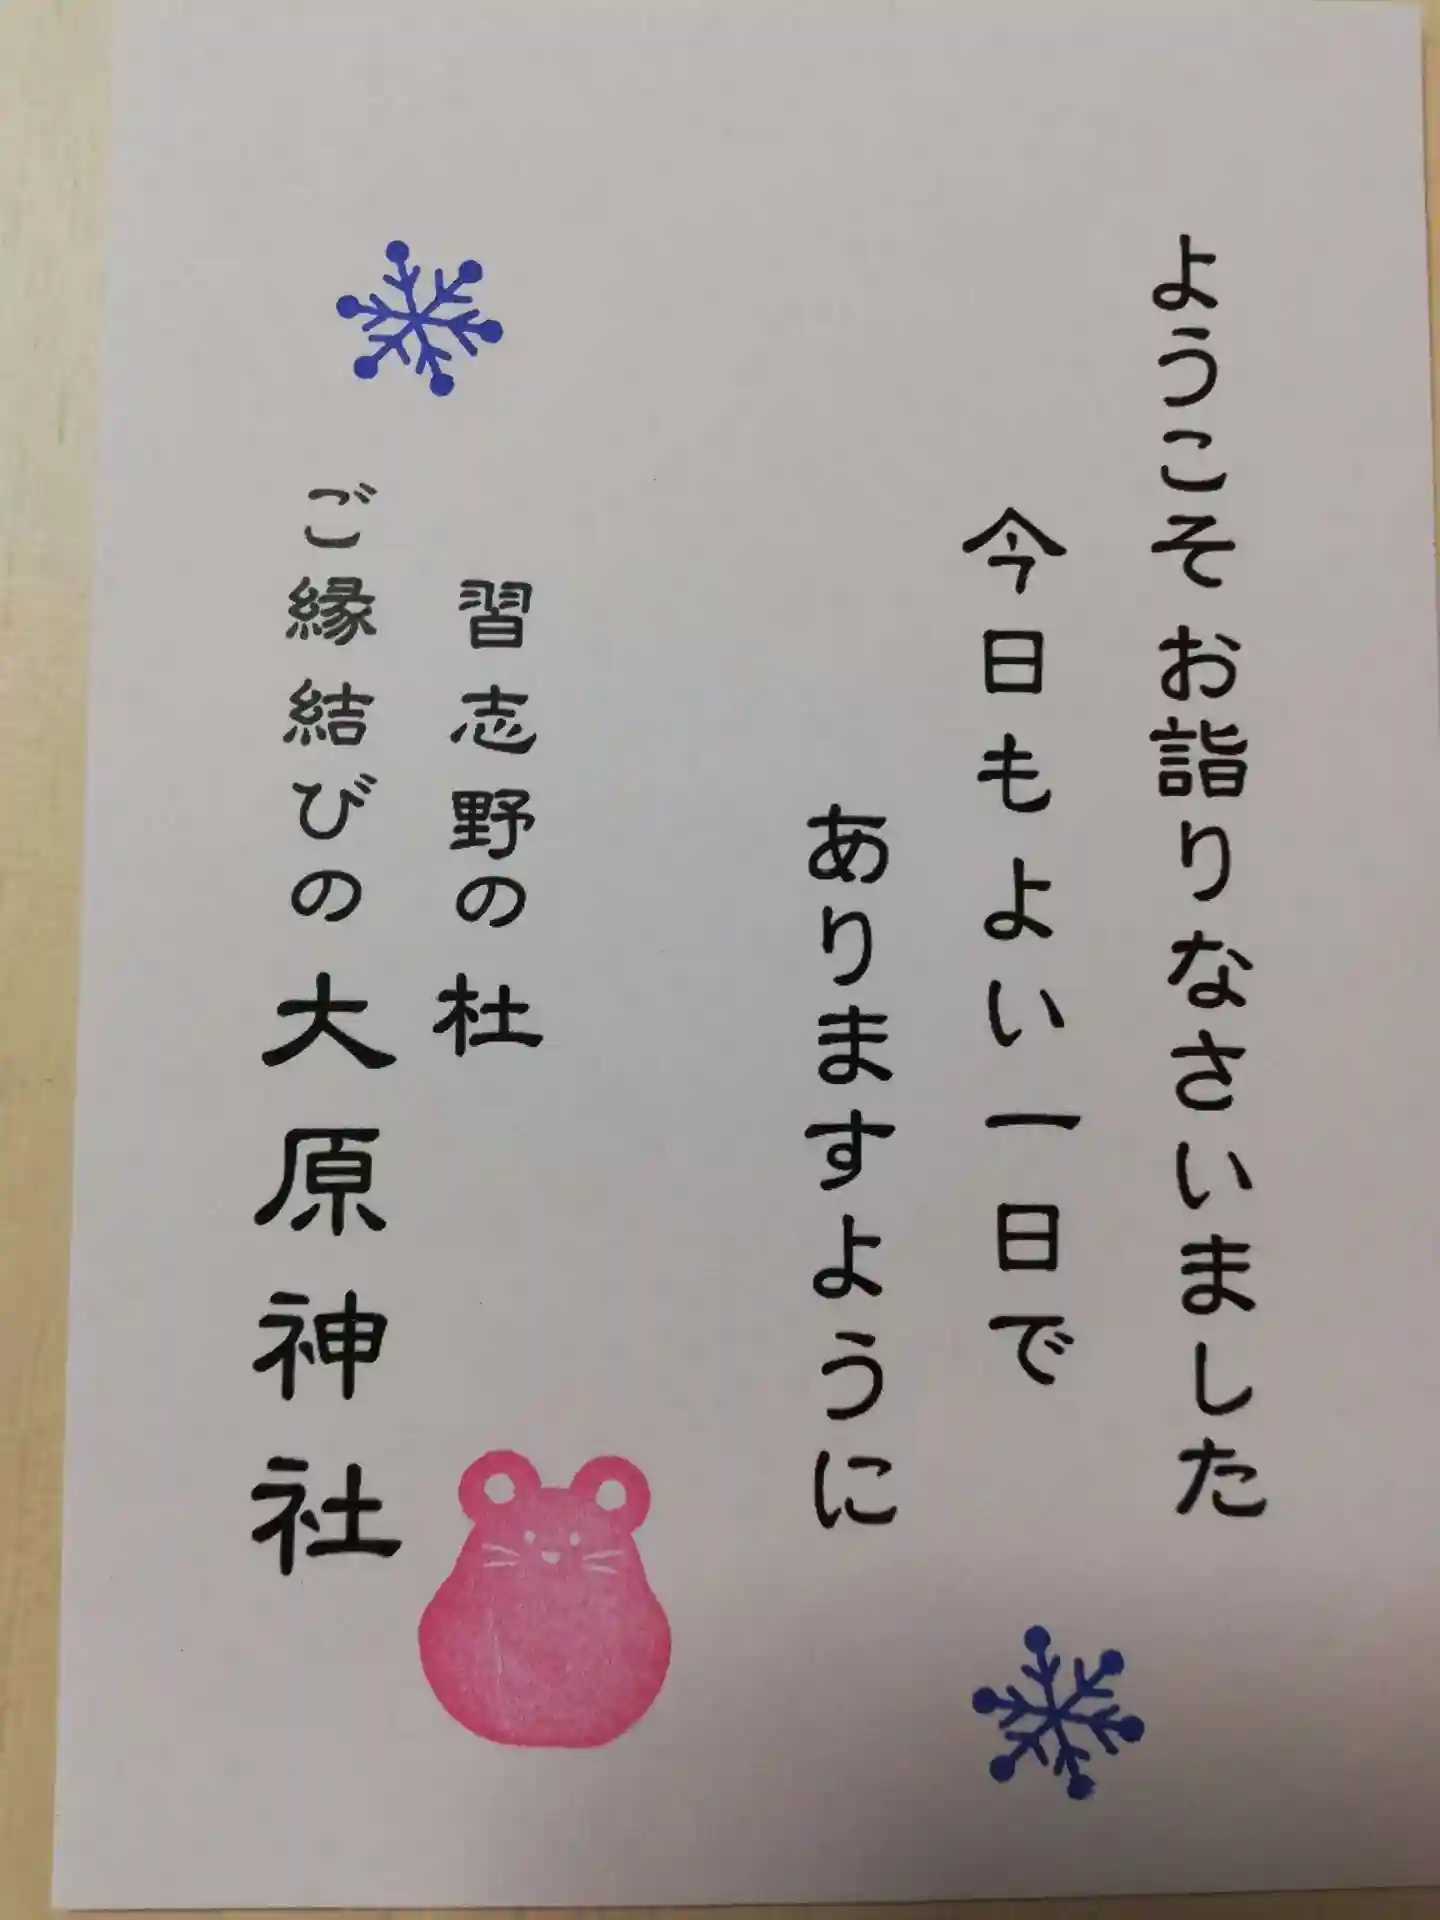 ようこそお詣りなさいました
今日もよい一日で
ありますように
習志野の杜
ご縁結びの大原神社